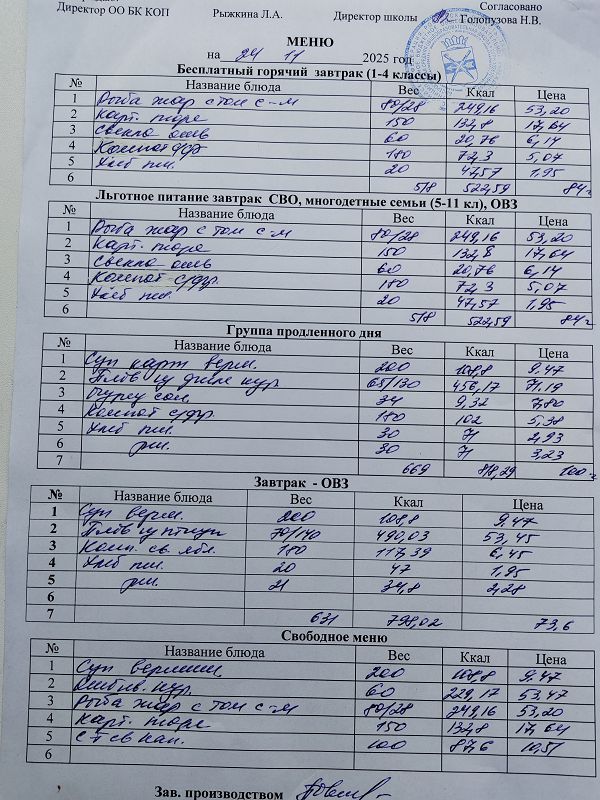 Согласовано
Директор ОО БК КОП Рыжкина Л.А. Директор школы Голопузова Н.В.
МЕНЮ
на 24 11 2025 год
Бесплатный горячий завтрак (1-4 классы)
№ Название блюда Вес Ккал Цена
1 Рыба жар с том с-м 80/28 249,16 53,20
2 Карт. пюре 150 132,8 17,64
3 Свекла отв 60 20,76 6,14
4 Компот с/фр 180 72,3 5,07
5 Хлеб пш. 20 47,57 1,95
6 518 522,59 84
Льготное питание завтрак СВО, многодетные семьи (5-11 кл), ОВЗ
№ Название блюда Вес Ккал Цена
1 Рыба жар с том с-м 80/28 249,16 53,20
2 Карт. пюре 150 132,8 17,64
3 Свекла отв 60 20,76 6,14
4 Компот с/фр. 180 72,3 5,07
5 Хлеб пш. 20 47,57 1,95
6 518 522,59 84
Группа продленного дня
№ Название блюда Вес Ккал Цена
1 Суп карт верм. 200 108,8 9.47
2 Плов из филе кур 65/130 456,17 71,19
3 Огурец сол. 34 9,32 7,80
4 Компот с/фр. 180 102 5,38
5 Хлеб пш. 30 71 2,93
6 рж. 30 71 3,23
7 669 818,29 100
Завтрак - ОВЗ
№ Название блюда Вес Ккал Цена
1 Суп верм. 200 108,8 9.47
2 Плов из птицы 70/140 490,03 53,45
3 Комп. св ябл. 180 117,39 6,45
4 Хлеб пш. 20 47 1,95
5 рж. 21 34,8 2,28
6
7 631 798,02 73,6
Свободное меню
№ Название блюда Вес Ккал Цена
1 Суп вермиш 200 108,8 9.47
2 кур. 60 229,17 53,47
3 Рыба жар с том с-м 80/28 249,16 53,20
4 Карт. пюре 150 132,8 17,64
5 С-т св кап. 100 87,6 10,51
6
Зав. производством